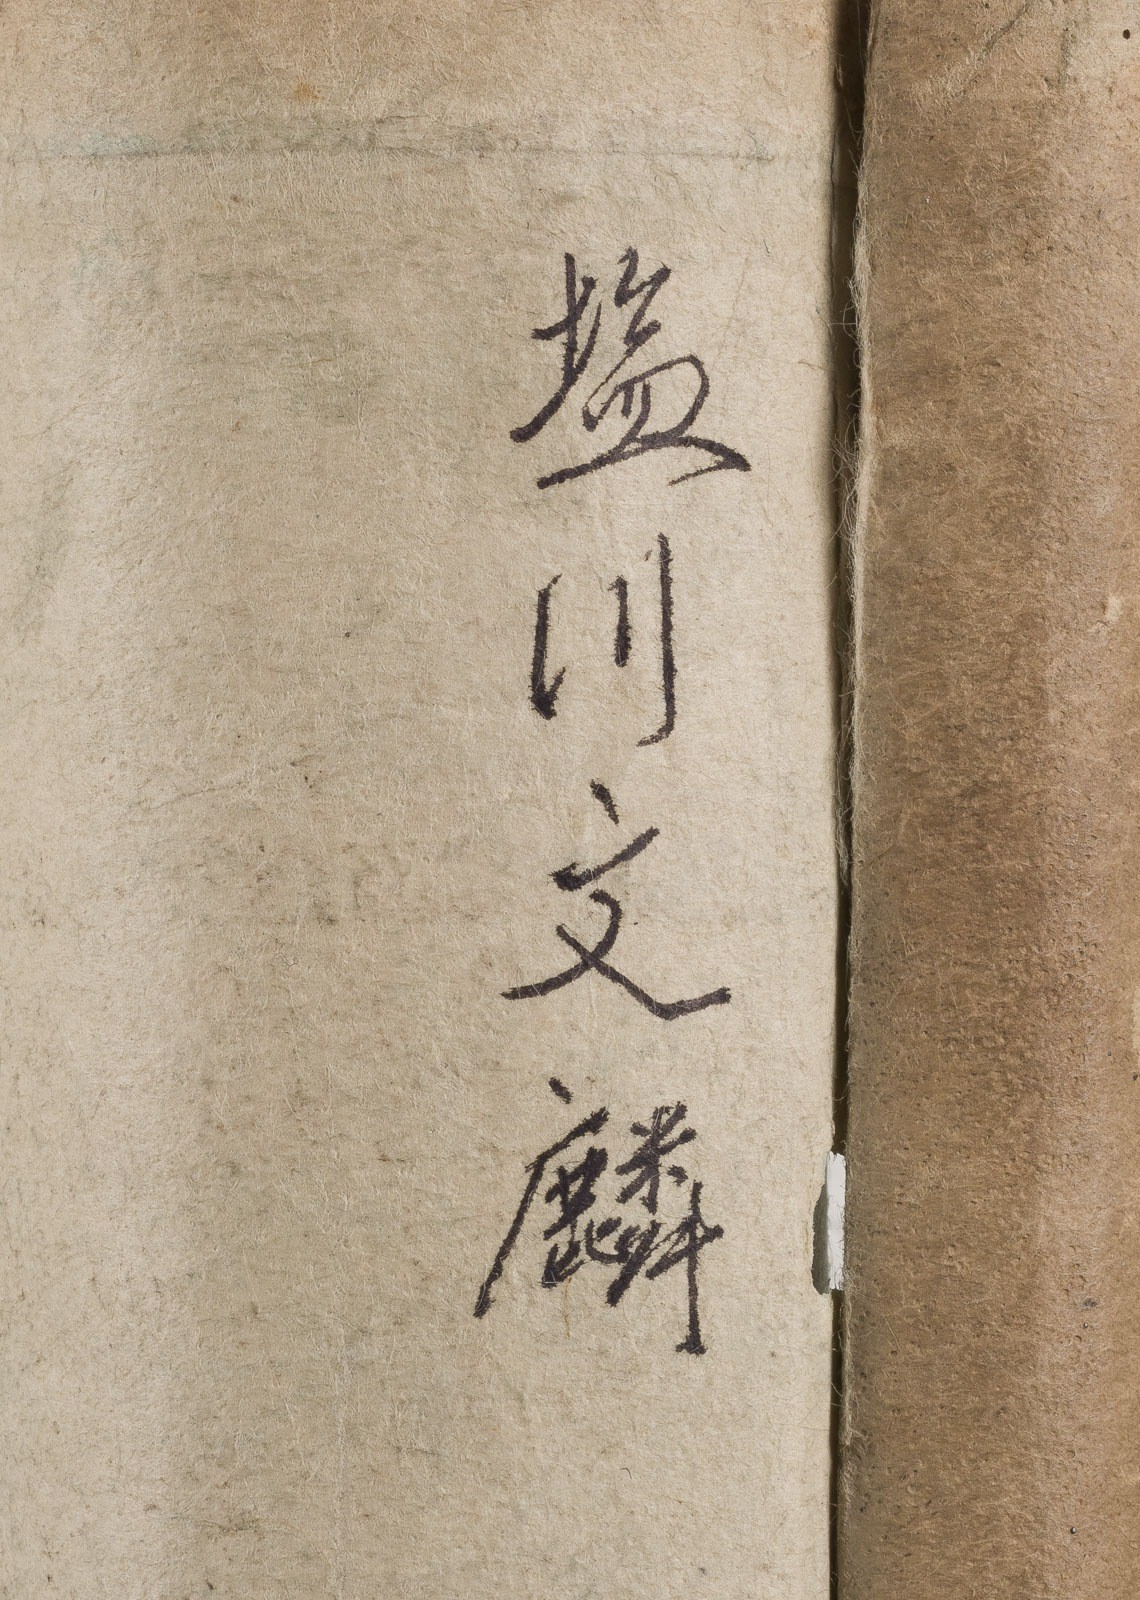 塩川文麟